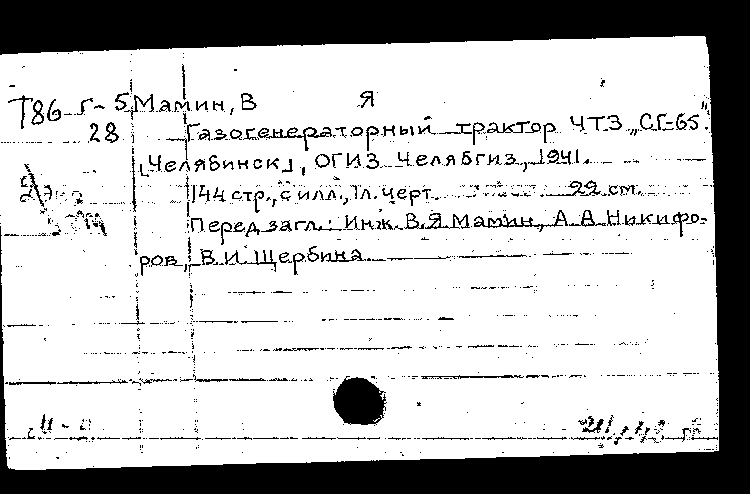 Т86 Г-5 Мамин, В Я
28 Газогенераторный трактор ЧТЗ „СГ-65".
[Челябинск], ОГИЗ Челябгиз, 1941.
144 стр., с илл., 1 л. черт. 22 см.
Перед загл.: Инж. В.Я Мамин, А.А Никифо-
ров, В.И. Щербина